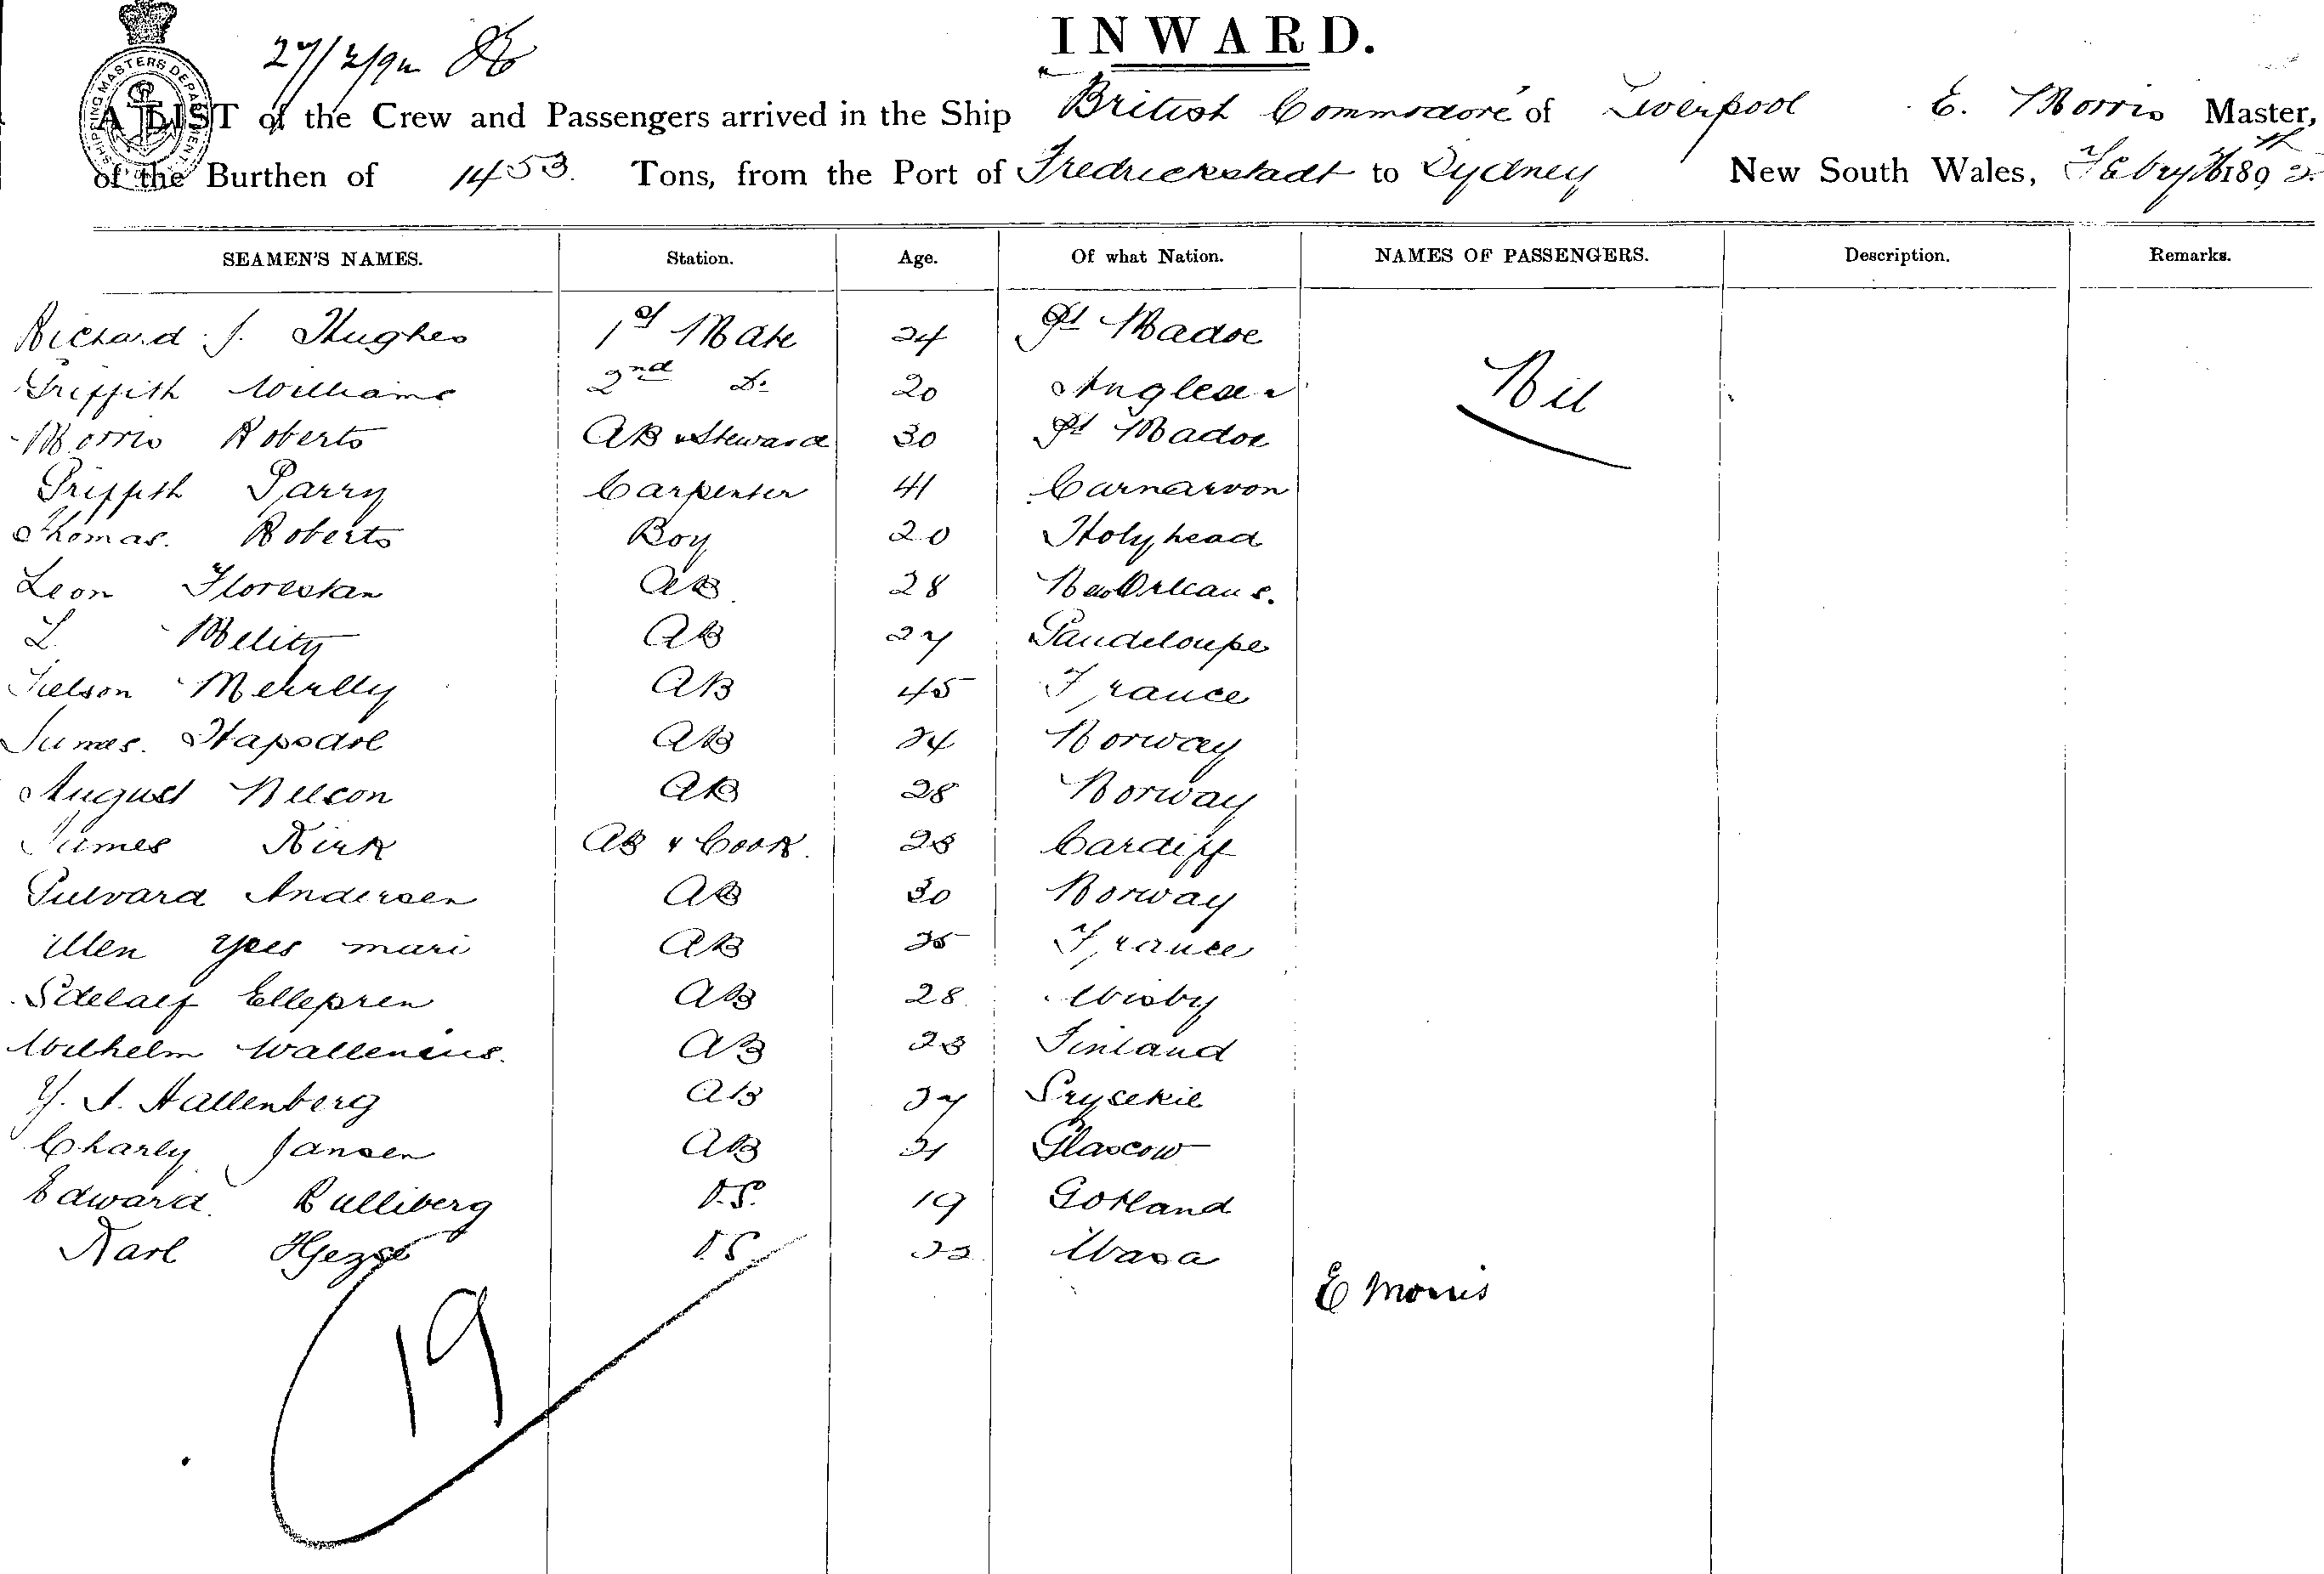 27/2/92
INWARD.
SHIPPING MASTERS DEPARTMENT
A LIST of the Crew and Passengers arrived in the Ship British Commodore of Liverpool E. Morris Master,
of the Burthen of 1453 Tons, from the Port of Fredrickstadt to Sydney New South Wales, Febry 1892
SEAMEN'S NAMES. Station. Age. Of what Nation. NAMES OF PASSENGERS. Description. Remarks.
Richard J. Hughes 1st Mate 24 Pt Madoc
Nil
Griffith Williams 2nd Do 20 Anglesea
Morris Roberts AB & Steward 30 Pt Madoc
Griffith Parry Carpenter 41 Carnarvon
Thomas. Roberts Boy 20 Holyhead
Leon Florestan AB 28 New Orleans.
L. Melity AB 27 Gaudeloupe
Merelly AB 45 France
James. AB 24 Norway
August Nelson AB 28 Norway
James Kirk AB & Cook 28 Cardiff
Andersen AB 30 Norway
Yees mari AB 35 France
AB 28 Wisby
Wilhelm Wallenius. AB 23 Finland
Hallenberg AB 27
Charly Jansen AB 21 Glascow
Edward Bulliberg O.S. 19 Gotland
Karl O.S. 22 Wasa
E Morris
19